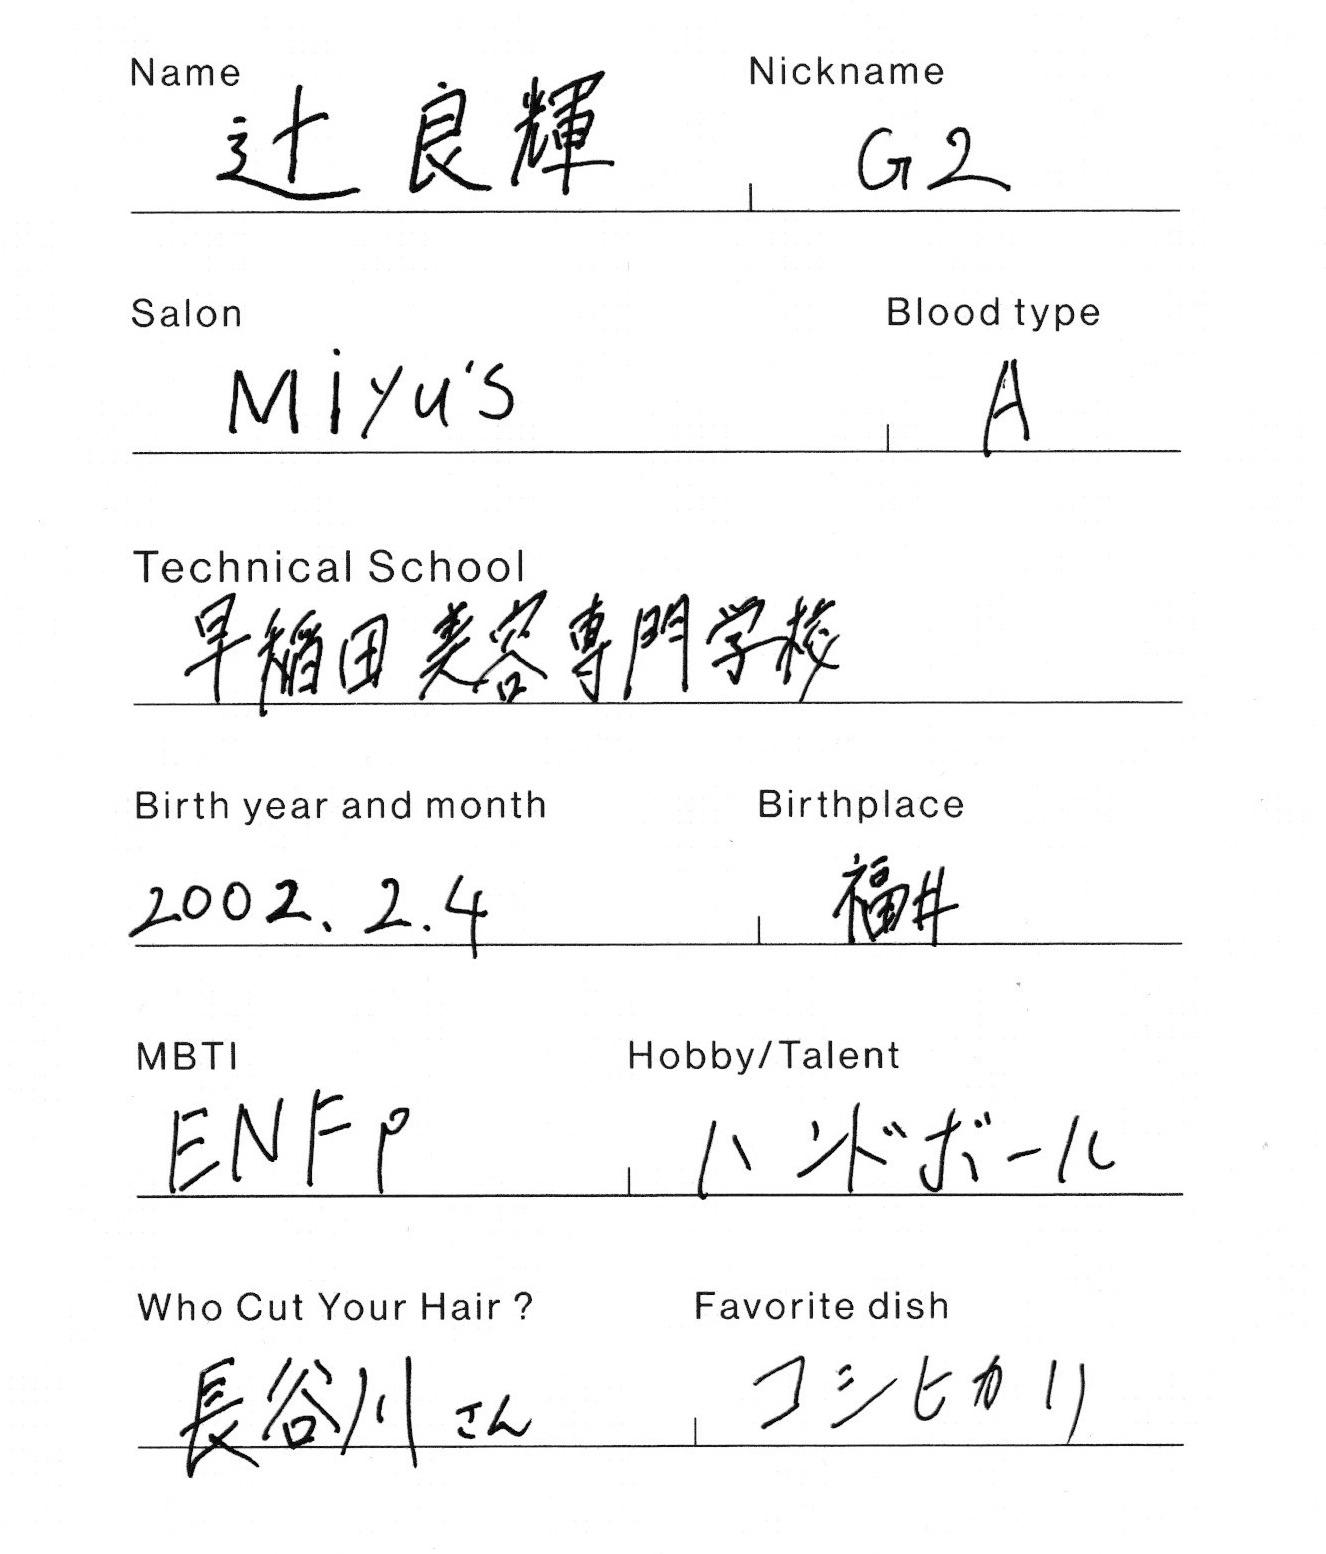 Name Nickname
辻 良輝 G2
Salon Blood type
Miyu's A
Technical School
早稲田美容専門学校
Birth year and month Birthplace
2002.2.4 福井
MBTI Hobby/Talent
ENFP ハンドボール
Who Cut Your Hair? Favorite dish
長谷川さん コシヒカリ